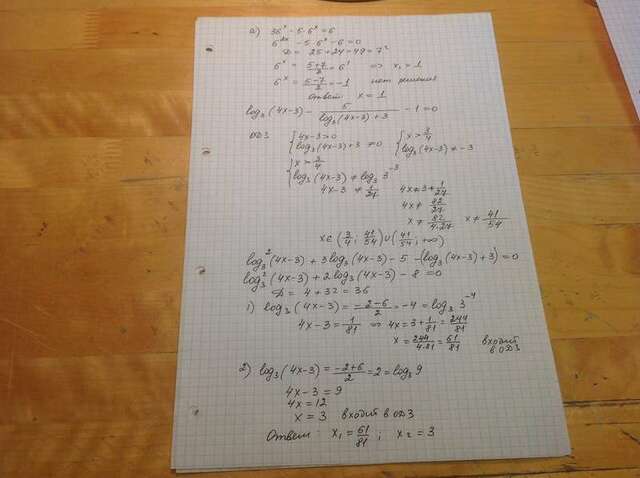 а) 36^x - 5·6^x = 6
6^2x - 5·6^x - 6 = 0
D = 25+24 = 49 = 7²
6^x = (5+7)/2 = 6¹ => x₁ = 1
6^x = (5-7)/2 = -1 нет решения
Ответ x = 1
log₃(4x-3) - 5/(log₃(4x-3)+3) - 1 = 0
ОДЗ { 4x-3>0 { x > 3/4
log₃(4x-3)+3 ≠ 0 log₃(4x-3) ≠ -3
{ x > 3/4
log₃(4x-3) ≠ log₃ 3^-3
4x-3 ≠ 1/27 4x ≠ 3+1/27
4x ≠ 82/27
x ≠ 82/4·27 x ≠ 41/54
x∈(3/4; 41/54)∪(41/54; +∞)
log₃²(4x-3) + 3log₃(4x-3) - 5 - (log₃(4x-3)+3) = 0
log₃²(4x-3) + 2log₃(4x-3) - 8 = 0
D = 4 + 32 = 36
1) log₃(4x-3) = (-2-6)/2 = -4 = log₃ 3^-4
4x-3 = 1/81 => 4x = 3+1/81 = 244/81
x = 244/4·81 = 61/81 входит в ОДЗ
2) log₃(4x-3) = (-2+6)/2 = 2 = log₃ 9
4x-3 = 9
4x = 12
x = 3 входит в ОДЗ
Ответ: x₁ = 61/81 ; x₂ = 3